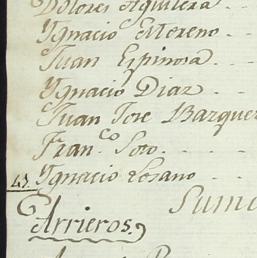 Dolores Aguilera
Ygnacio Moreno
Juan Espinosa
Ygnacio Diaz
Juan Jose Bazquez
Fran.co Soto
43. Ygnacio Losano
Suma
Arrieros.